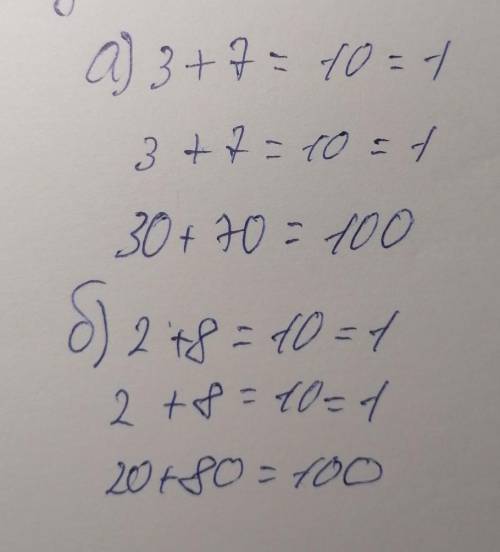 а) 3 + 7 = 10 = 1
3 + 7 = 10 = 1
30 + 70 = 100
б) 2 + 8 = 10 = 1
2 + 8 = 10 = 1
20 + 80 = 100